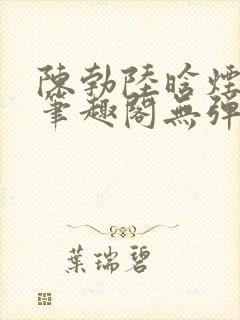 陳勃陸晗煙
筆趣閣無彈
葉瑞碧